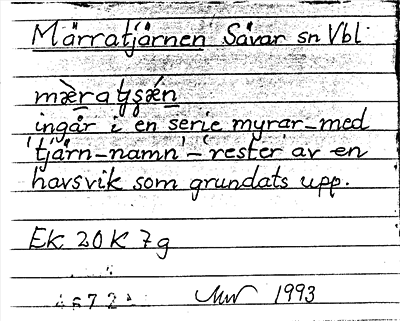 Märratjärnen Sävar sn Vbl.
ingår i en serie myrar med
'tjärn-namn' - 'rester' av en
havsvik som grundats upp.
Ek 20K 7g
1993